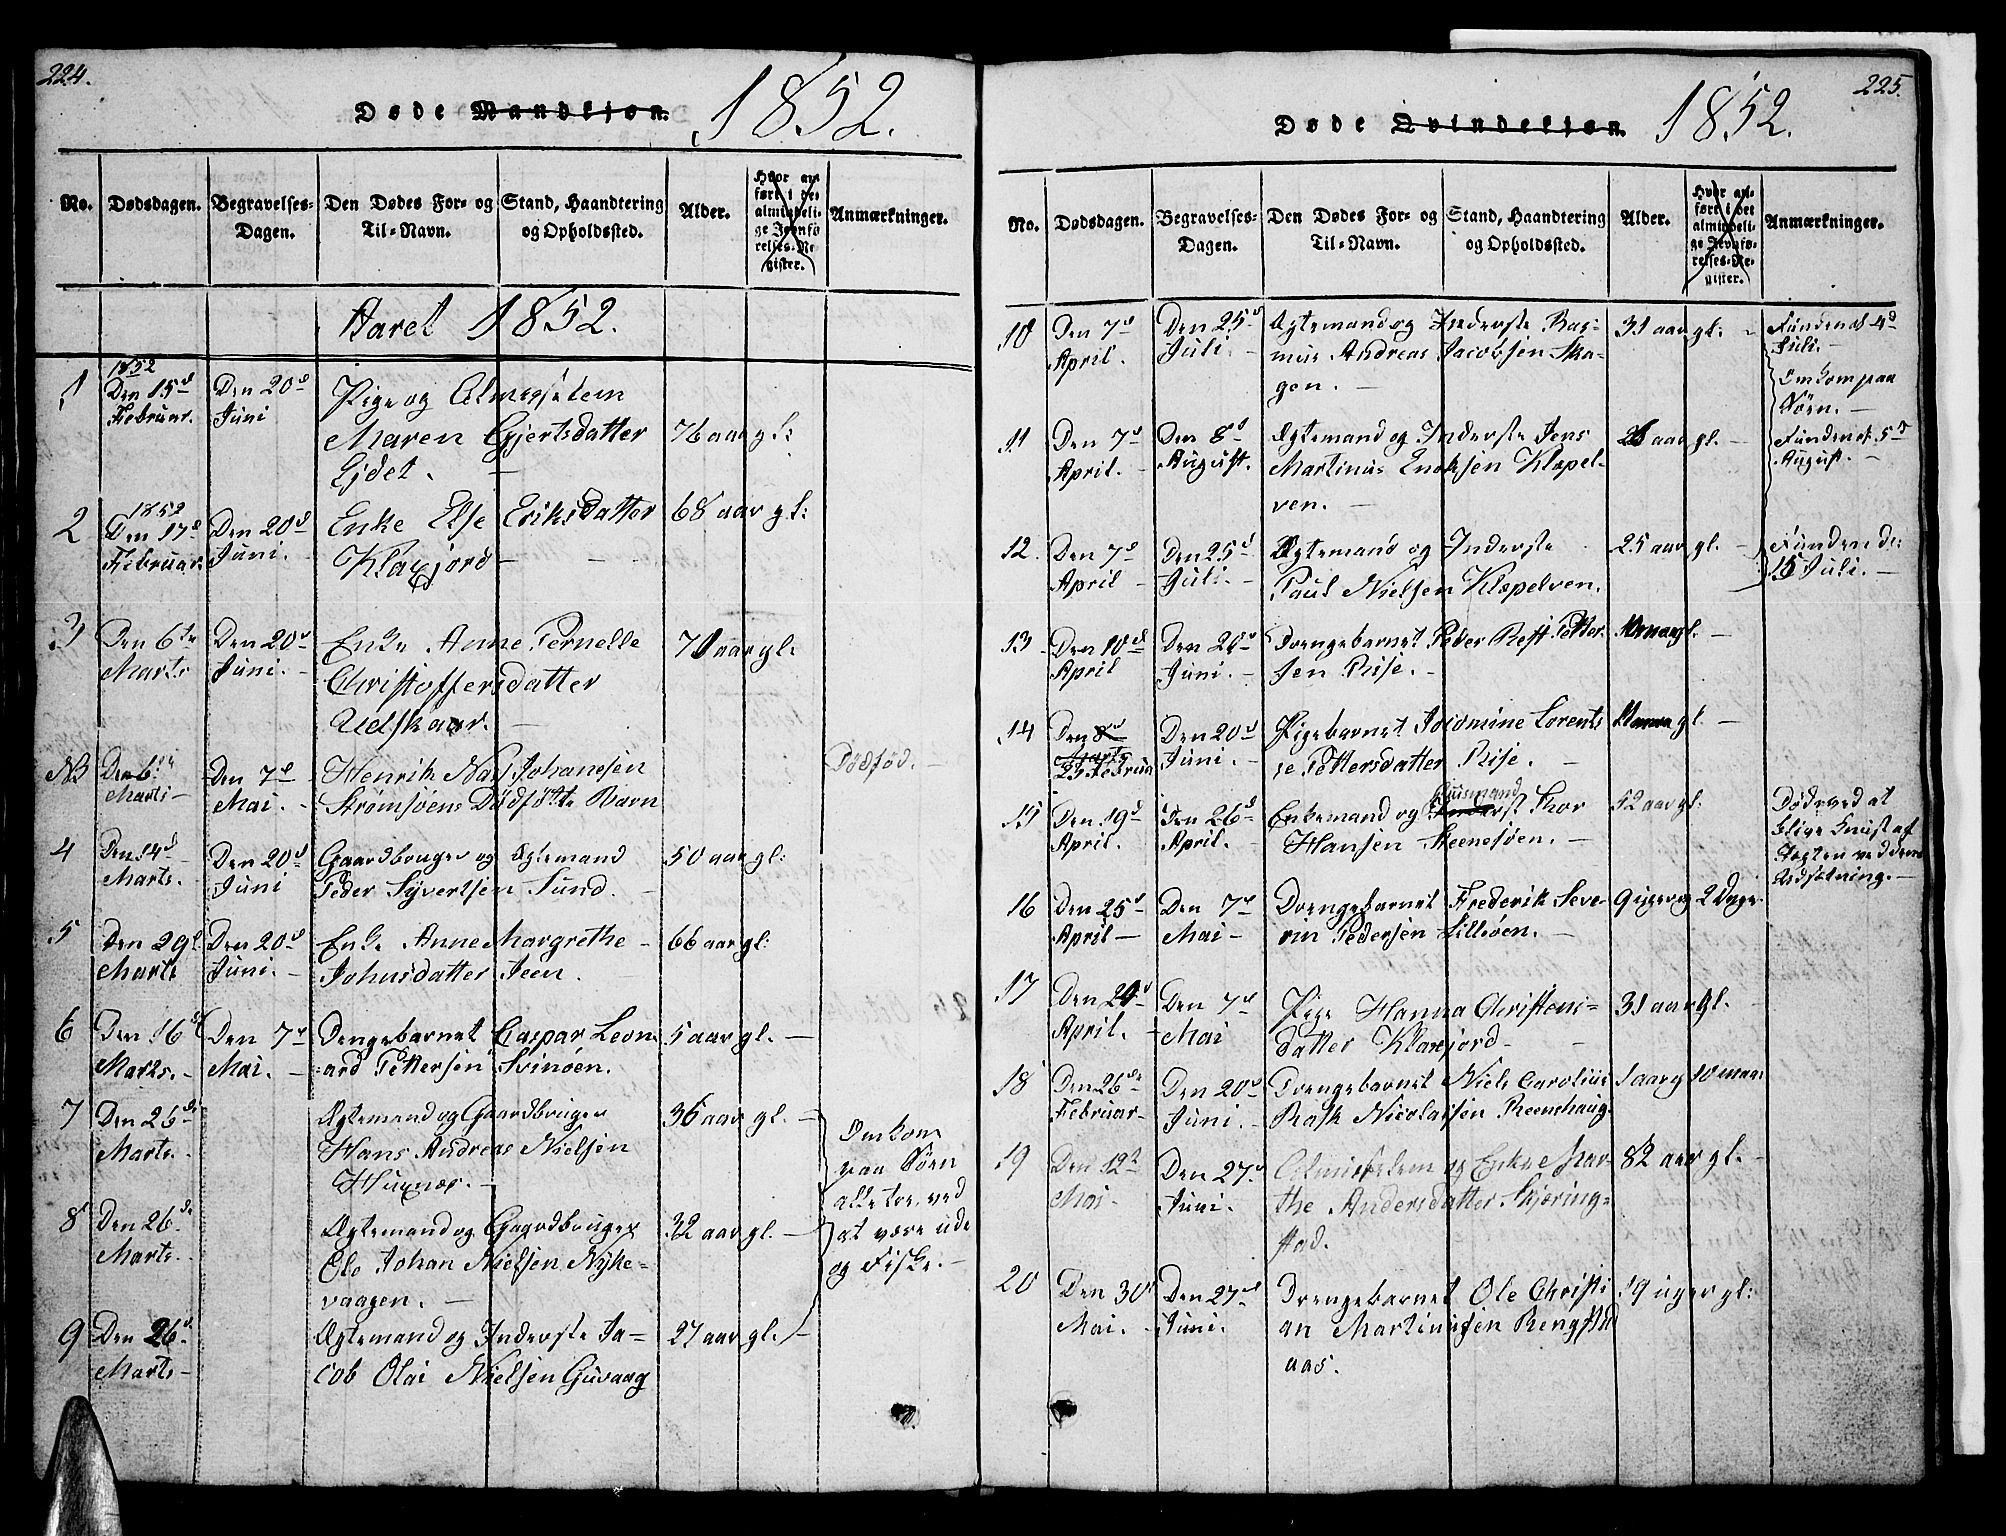 224.
Døde Mandkjøn. 1852.
No.
Dødsdagen.
Begravelses-
Dagen.
Den Dødes For- og
Til-Navn.
Stand, Haandtering
og Opholdssted.
Alder.
Hvor an-
ført i det
almindeli-
ge Jevnfø-
relses-Re-
gister.
Anmærkninger.
Aaret 1852.
1
1852
Den 15d
Februar.
Den 20d
Juni
Pige og Almisselem
Maren Gjertsdatter
Ejdet.
76 aar gl:
2
1852
Den 17d
Februar.
Den 20d
Juni.
Enke Else Eriksdatter
Klaxjord
68 aar gl:
3
Den 6te
Marts
Den 20d
Juni.
Enke Anne Pernelle
Christoffersdatter
Uelskaar.
71 aar gl.
NB
Den 6te
Marts
Den 7d
Mai.
Henrik Johansen
Strømsøens Dødfødte Barn
Dødfød.
4
Den 14d
Marts.
Den 20d
Juni
Gaardbruger og Egtemand
Peder Syvertsen Sund.
50 aar gl:
5
Den 29d
Marts
Den 20d
Juni.
Enke Anne Margrethe
Johnsdatter Steen.
66 aar gl:
6
Den 16d
Marts.
Den 7d
Mai.
Drengebarnet Caspar Leon-
ard Pettersen Svinøen.
5 aar gl.
7
Den 26de
Marts.
Ægtemand og Gaardbruger
Hans Andreas Nielsen
Huxnæs.
36 aar gl.
Omkom
paa Søen
alle tre, ved
at være ude
og Fiske.
8
Den 26de
Marts.
Ægtemand og Gaardbruger
Ole Johan Nielsen Nyke-
vaagen.
32 aar gl.
9
Den 26d
Marts
Ægtemand og Inderste Ja-
cob Olai Nielsen Guvaag
27 aar gl.
225.
Døde Qvindekjøn. 1852.
No.
Dødsdagen.
Begravelses-
Dagen.
Den Dødes For- og
Til-Navn.
Stand, Haandtering
og Opholdssted.
Alder.
Hvor an-
ført i det
almindeli-
ge Jevnfø-
relses-Re-
gister.
Anmærkninger.
10
Den 7d
April.
Den 25d
Juli.
Ægtemand og Inderste Ras-
mus Andreas Jacobsen Ska-
gen.
31 aar gl:
Funden d. 4d
Juli.
Omkom paa
Søen.
11
Den 7d
April.
Den 8d
August.
Ægtemand og Inderste Jens
Martinus Enoksen Klapel-
ven.
26 aar gl.
Funden d. 5d
August.
12.
Den 7d
April
Den 25d
Juli.
Ægtemand og Inderste
Paul Nielsen Klapelven.
25 aar gl.
Funden d:
15 Juli.
13.
Den 10d
April
Den 20d
Juni.
Drengebarnet Peder Rest Petter-
sen Rise.
aar gl.
14
Den 8d
Marts
25 Februar
Den 20d
Juni.
Pigebarnet Lorents
se Pettersdatter Rise.
gl.
15
Den 19d
April.
Den 26d
April.
Enkemand og Inderst Huusmand Thor
Hansen Steenesøen.
52 aar gl.
Døde ved at
blive knust af
ved dens
Udsætning.
16
Den 25d
April
Den 7d
Mai
Drengebarnet Frederik Seve-
rin Pedersen Lilleøen.
9 uger og 2 Dage
17
Den 24d
April.
Den 7d
Mai
Pige Hanna Christens-
datter Klaxjord
31 aar gl.
18
Den 26de
Februar
Den 20d
Juni.
Drengebarnet Niels Carolius
Rask Nicolaisen Reenshaug
1 aar og 10 maan
19
Den 12te
Mai.
Den 27d
Juni.
Almisselem og Enke Mar-
the Andersdatter Skjæring-
stad.
82 aar gl.
20
Den 30d
Mai.
Den 27d
Juni.
Drengebarnet Ole Christi-
an Martinusen Ringstad
aas.
19 uger gl: